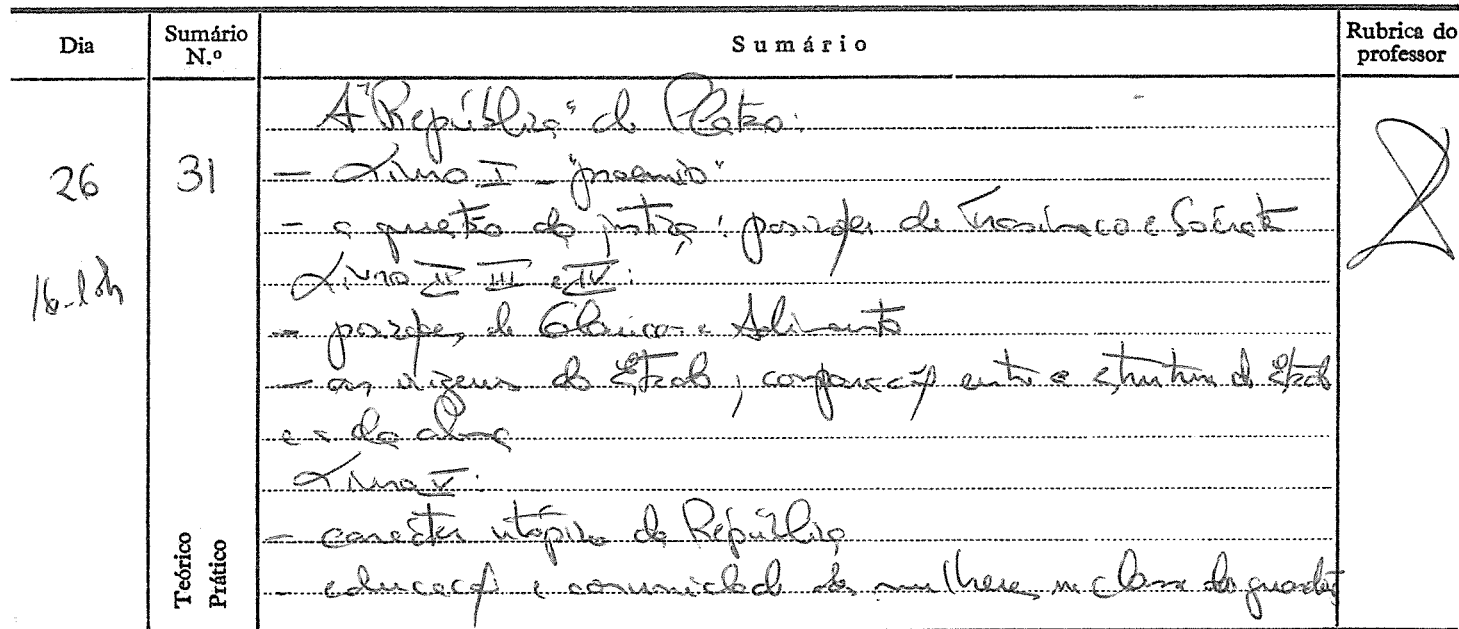 Dia
Sumário N.º
Sumário
Rubrica do professor
26
16-18h
31
Teórico
Prático
A "República" de Platão:
- Livro I - "proémio"
- a questão da justiça: posições de Trasímaco e Sócrates
Livro II III e IV:
- posições de Gláucon e Adimanto
- as origens do Estado; comparação entre a estrutura do Estado
e a da alma
Livro V:
- carácter utópico da República
- educação e comunidade das mulheres na classe dos guardiões